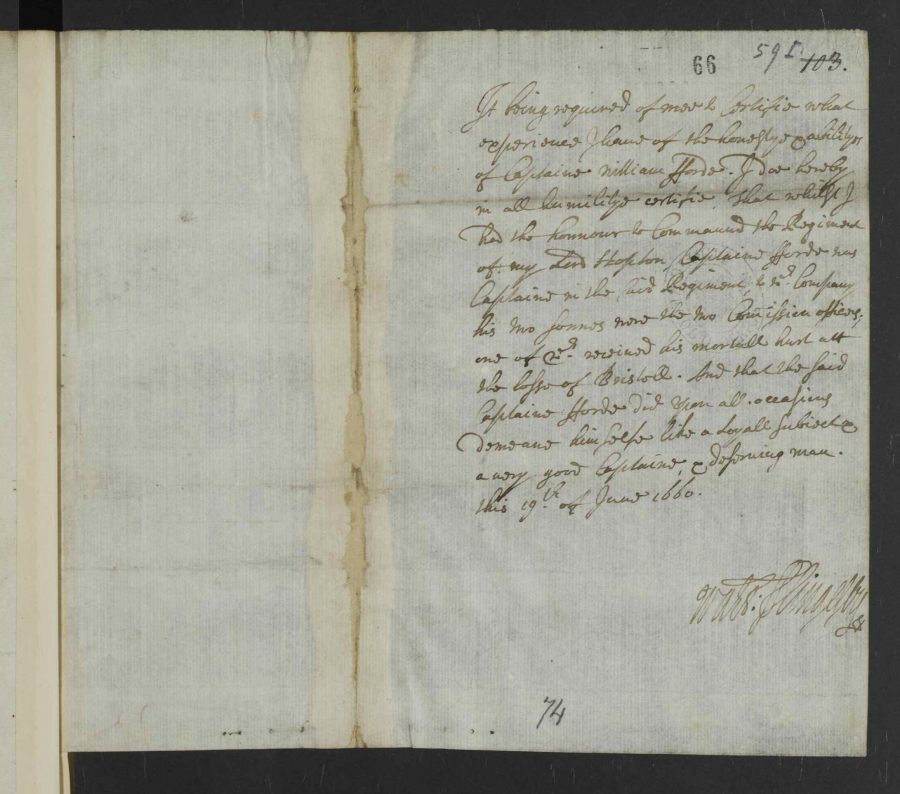 66 591. 103.
It being required of mee to Certifie what
experience I haue of the honestye & abilitye
of Captaine William fforde. I doe hereby
in all humilitye certifie that whilst I
had the honnour to Commaund the Regiment
of my Lord Hopton, Captaine fforde was
Captaine in the said Regiment, to wch. Company
his two sonnes were the two Commission officers,
one of wch. receiued his mortall hurt att
the losse of Bristoll. And that the said
Captaine fforde did upon all occasions
demeane himselfe like a Loyall subiect &
a very good Captaine, & deserving man.
this 19th. of June 1660.
Walt: Slingesby
74